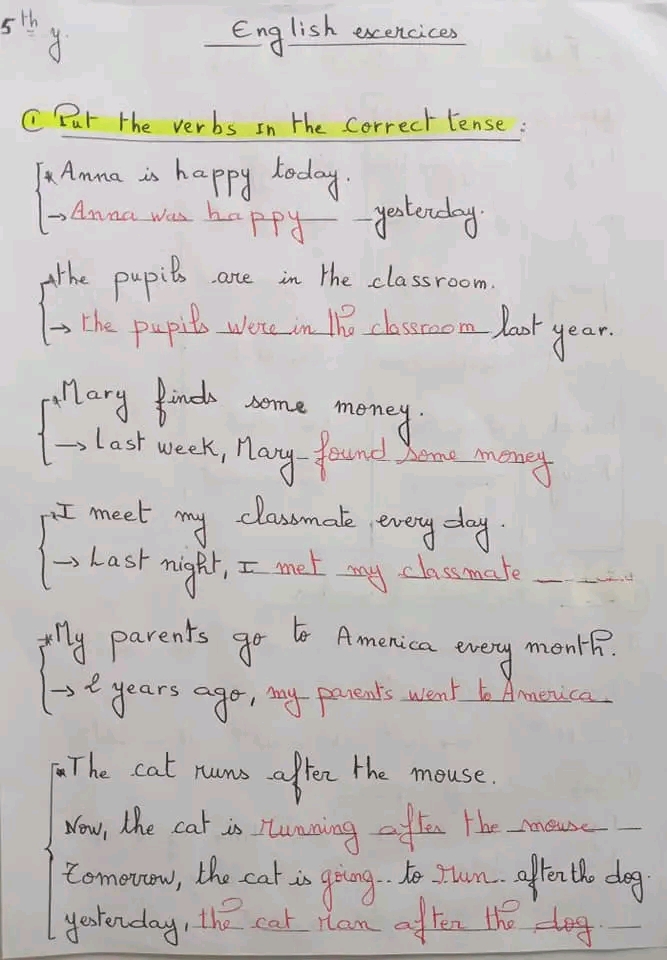 5th y.
English escercices
① Put the verbs in the correct tense:
* Anna is happy today.
→ Anna was happy yesterday.
* the pupils are in the classroom.
→ the pupils were in the classroom last year.
* Mary finds some money.
→ Last week, Mary found some money
* I meet my classmate every day.
→ Last night, I met my classmate
* My parents go to America every month.
→ 2 years ago, my parents went to America.
* The cat runs after the mouse.
Now, the cat is running after the mouse
Tomorrow, the cat is going.. to run.. after the dog.
yesterday, the cat ran after the dog.